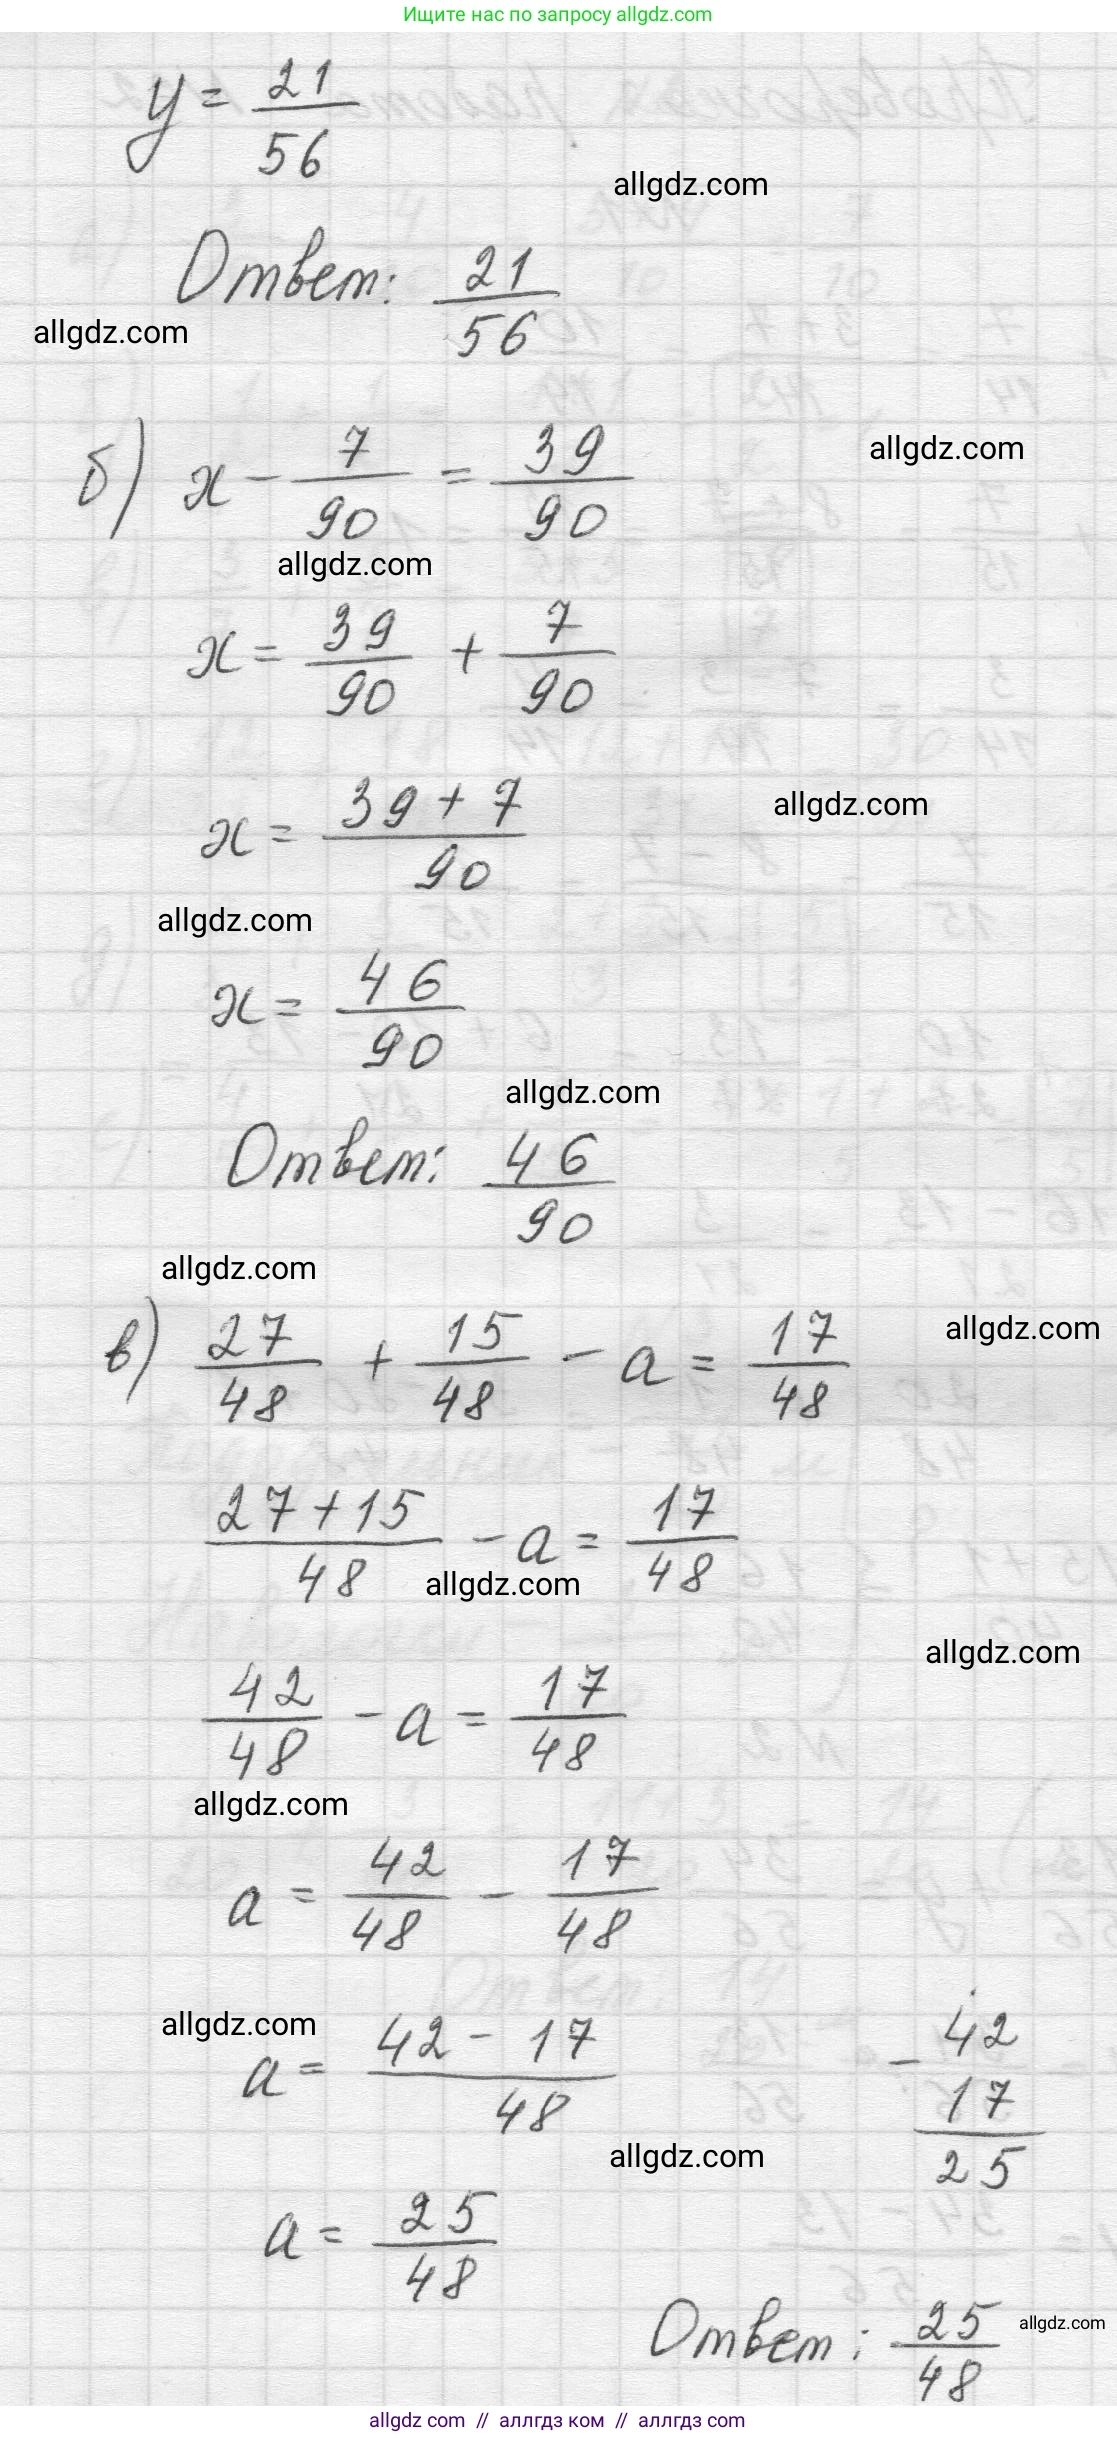 Ищите нас по запросу allgdz.com
y = 21/56
allgdz.com
Ответ: 21/56
allgdz.com
б) x - 7/90 = 39/90
allgdz.com
allgdz.com
x = 39/90 + 7/90
x = (39 + 7)/90
allgdz.com
allgdz.com
x = 46/90
allgdz.com
Ответ: 46/90
allgdz.com
в) 27/48 + 15/48 - a = 17/48
allgdz.com
(27 + 15)/48 - a = 17/48
allgdz.com
allgdz.com
42/48 - a = 17/48
allgdz.com
a = 42/48 - 17/48
allgdz.com
a = (42 - 17)/48
- 42
17
25
allgdz.com
a = 25/48
Ответ: 25/48
allgdz.com
allgdz com // аллгдз ком // аллгдз.com